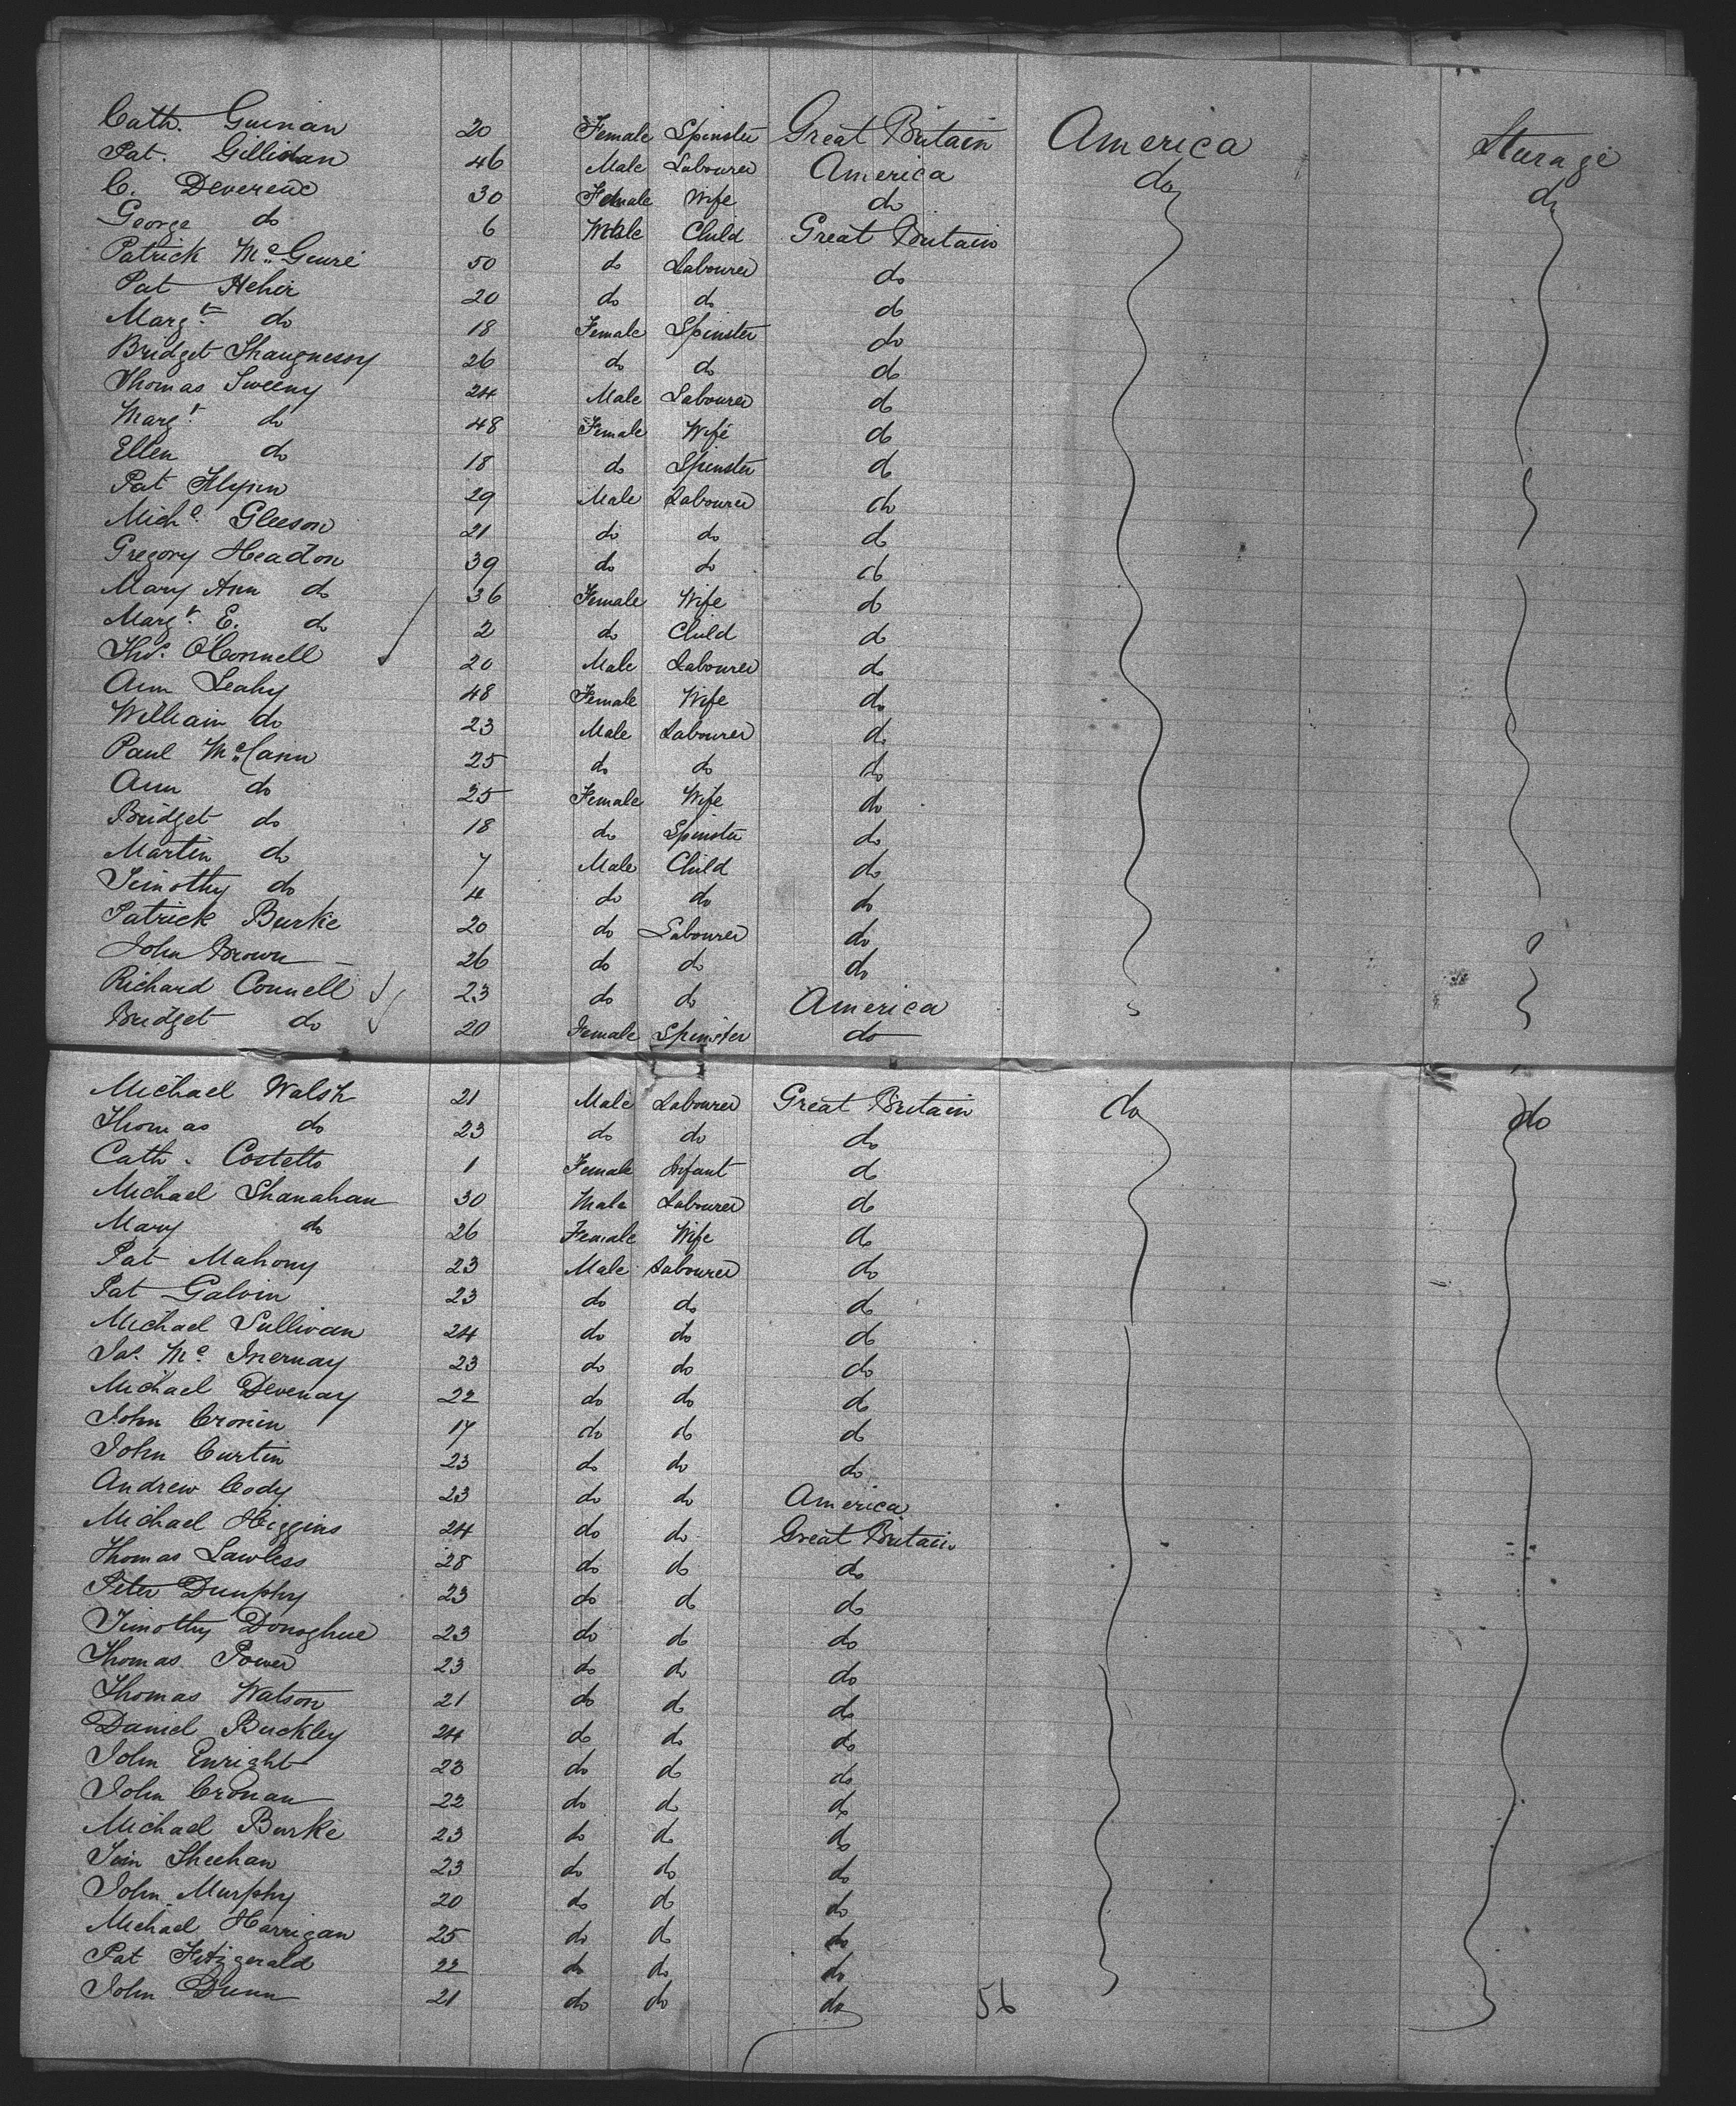 Cath. Guinan 20 Female Spinster Great Britain America Sturage
Pat. Gillidan 46 Male Labourer America do do
C. Devereux 30 Female Wife do
George do 6 Male Child Great Britain
Patrick McGuire 50 do Labourer do
Pat Heher 20 do do do
Margt do 18 Female Spinster do
Bridget Shaugnessy 26 do do do
Thomas Sweeny 24 Male Labourer do
Margt do 48 Female Wife do
Ellen do 18 do Spinster do
Pat Flynn 29 Male Labourer do
Michl Gleeson 21 do do do
Gregory Headon 39 do do do
Mary Ann do 36 Female Wife do
Margt E. do 2 do Child do
Thos. OConnell 20 Male Labourer do
Ann Leahy 48 Female Wife do
William do 23 Male Labourer do
Paul McCann 25 do do do
Ann do 25 Female Wife do
Bridget do 18 do Spinster do
Martin do 7 Male Child do
Timothy do 4 do do do
Patrick Burke 20 do Labourer do
John Brown 26 do do do
Richard Connell 23 do do America
Bridget do 20 Female Spinster do
Michael Walsh 21 Male Labourer Great Britain do do
Thomas do 23 do do do
Cath. Costello 1 Female Infant do
Michael Shanahan 30 Male Labourer do
Mary do 26 Female Wife do
Pat Mahony 23 Male Labourer do
Pat Galvin 23 do do do
Michael Sullivan 24 do do do
Jas. Mc Inernay 23 do do do
Michael Devenay 22 do do do
John Cronin 17 do do do
John Curtin 23 do do do
Andrew Cody 23 do do America
Michael Higgins 24 do do Great Britain
Thomas Lawless 28 do do do
Peter Dunphy 23 do do do
Timothy Donoghue 23 do do do
Thomas Power 23 do do do
Thomas Watson 21 do do do
Daniel Buckley 24 do do do
John Enright 23 do do do
John Cronan 22 do do do
Michael Burke 23 do do do
Tim Sheehan 23 do do do
John Murphy 20 do do do
Michael Harrigan 25 do do do
Pat Fitzgerald 22 do do do
John Dunn 21 do do do 56